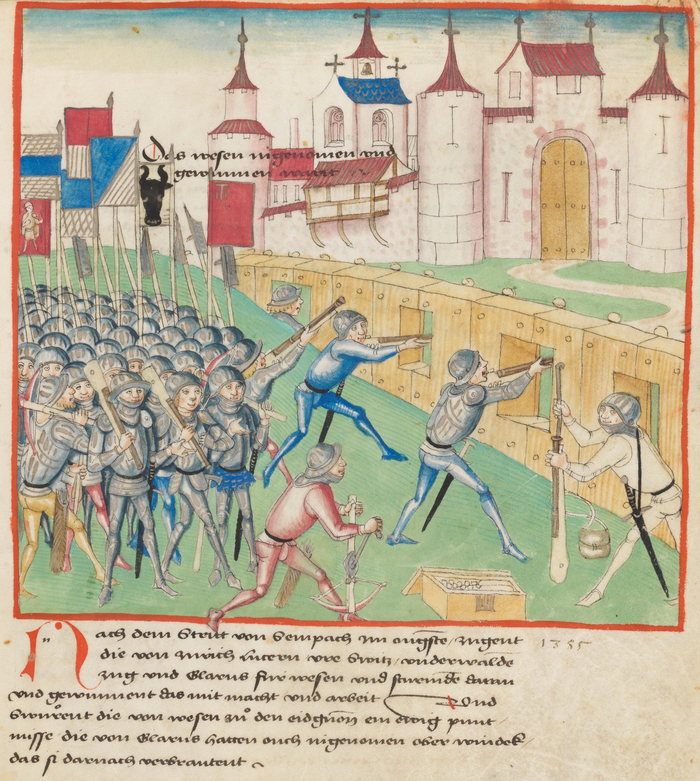 Das wesen ingenomen vnd
gewunnen wart
Nach dem Stritt von Sempach im ougste / zugent
die von zürich Lucern vre Switz / vnderwalde
1355
zug vnd Glarus fur wesen vnd sturmde daran
vnd gewunnent das mit macht vnd arbeit Und
Swurent die von wesen zů den eidgnon ein ewig punt
nusse die von Glarus hatten ouch ingenomen ober windek
das si darnach verbrantent